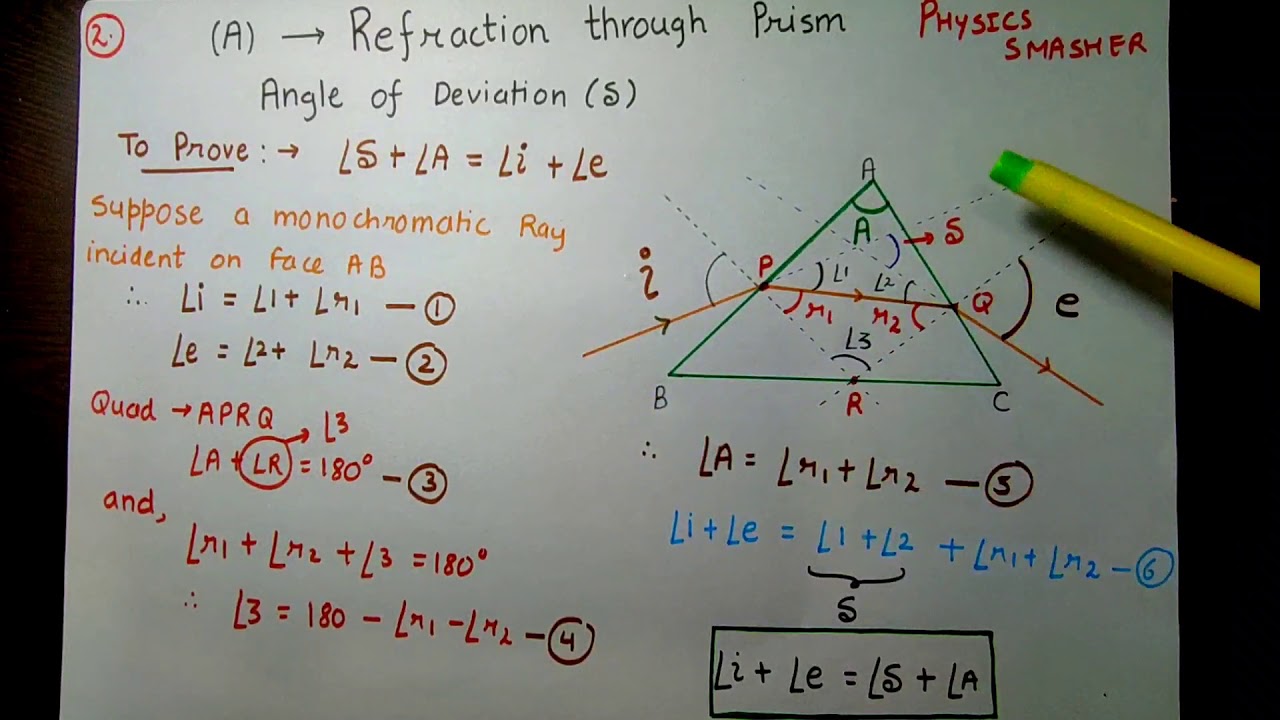 2. (A) → Refraction through Prism
PHYSICS
SMASHER
Angle of Deviation (δ)
To Prove : → ∠δ + ∠A = ∠i + ∠e
Suppose a monochromatic Ray
incident on face AB
∴ ∠i = ∠1 + ∠r1 — 1
∠e = ∠2 + ∠r2 — 2
Quad → APRQ
∠3
∠A + ∠R = 180° — 3
and,
∠r1 + ∠r2 + ∠3 = 180°
∴ ∠3 = 180 - ∠r1 - ∠r2 — 4
A
A
δ
i
P
∠1
∠2
Q
e
r1
r2
∠3
B
R
C
∴ ∠A = ∠r1 + ∠r2 — 5
∠i + ∠e = ∠1 + ∠2 + ∠r1 + ∠r2 — 6
δ
∠i + ∠e = ∠δ + ∠A